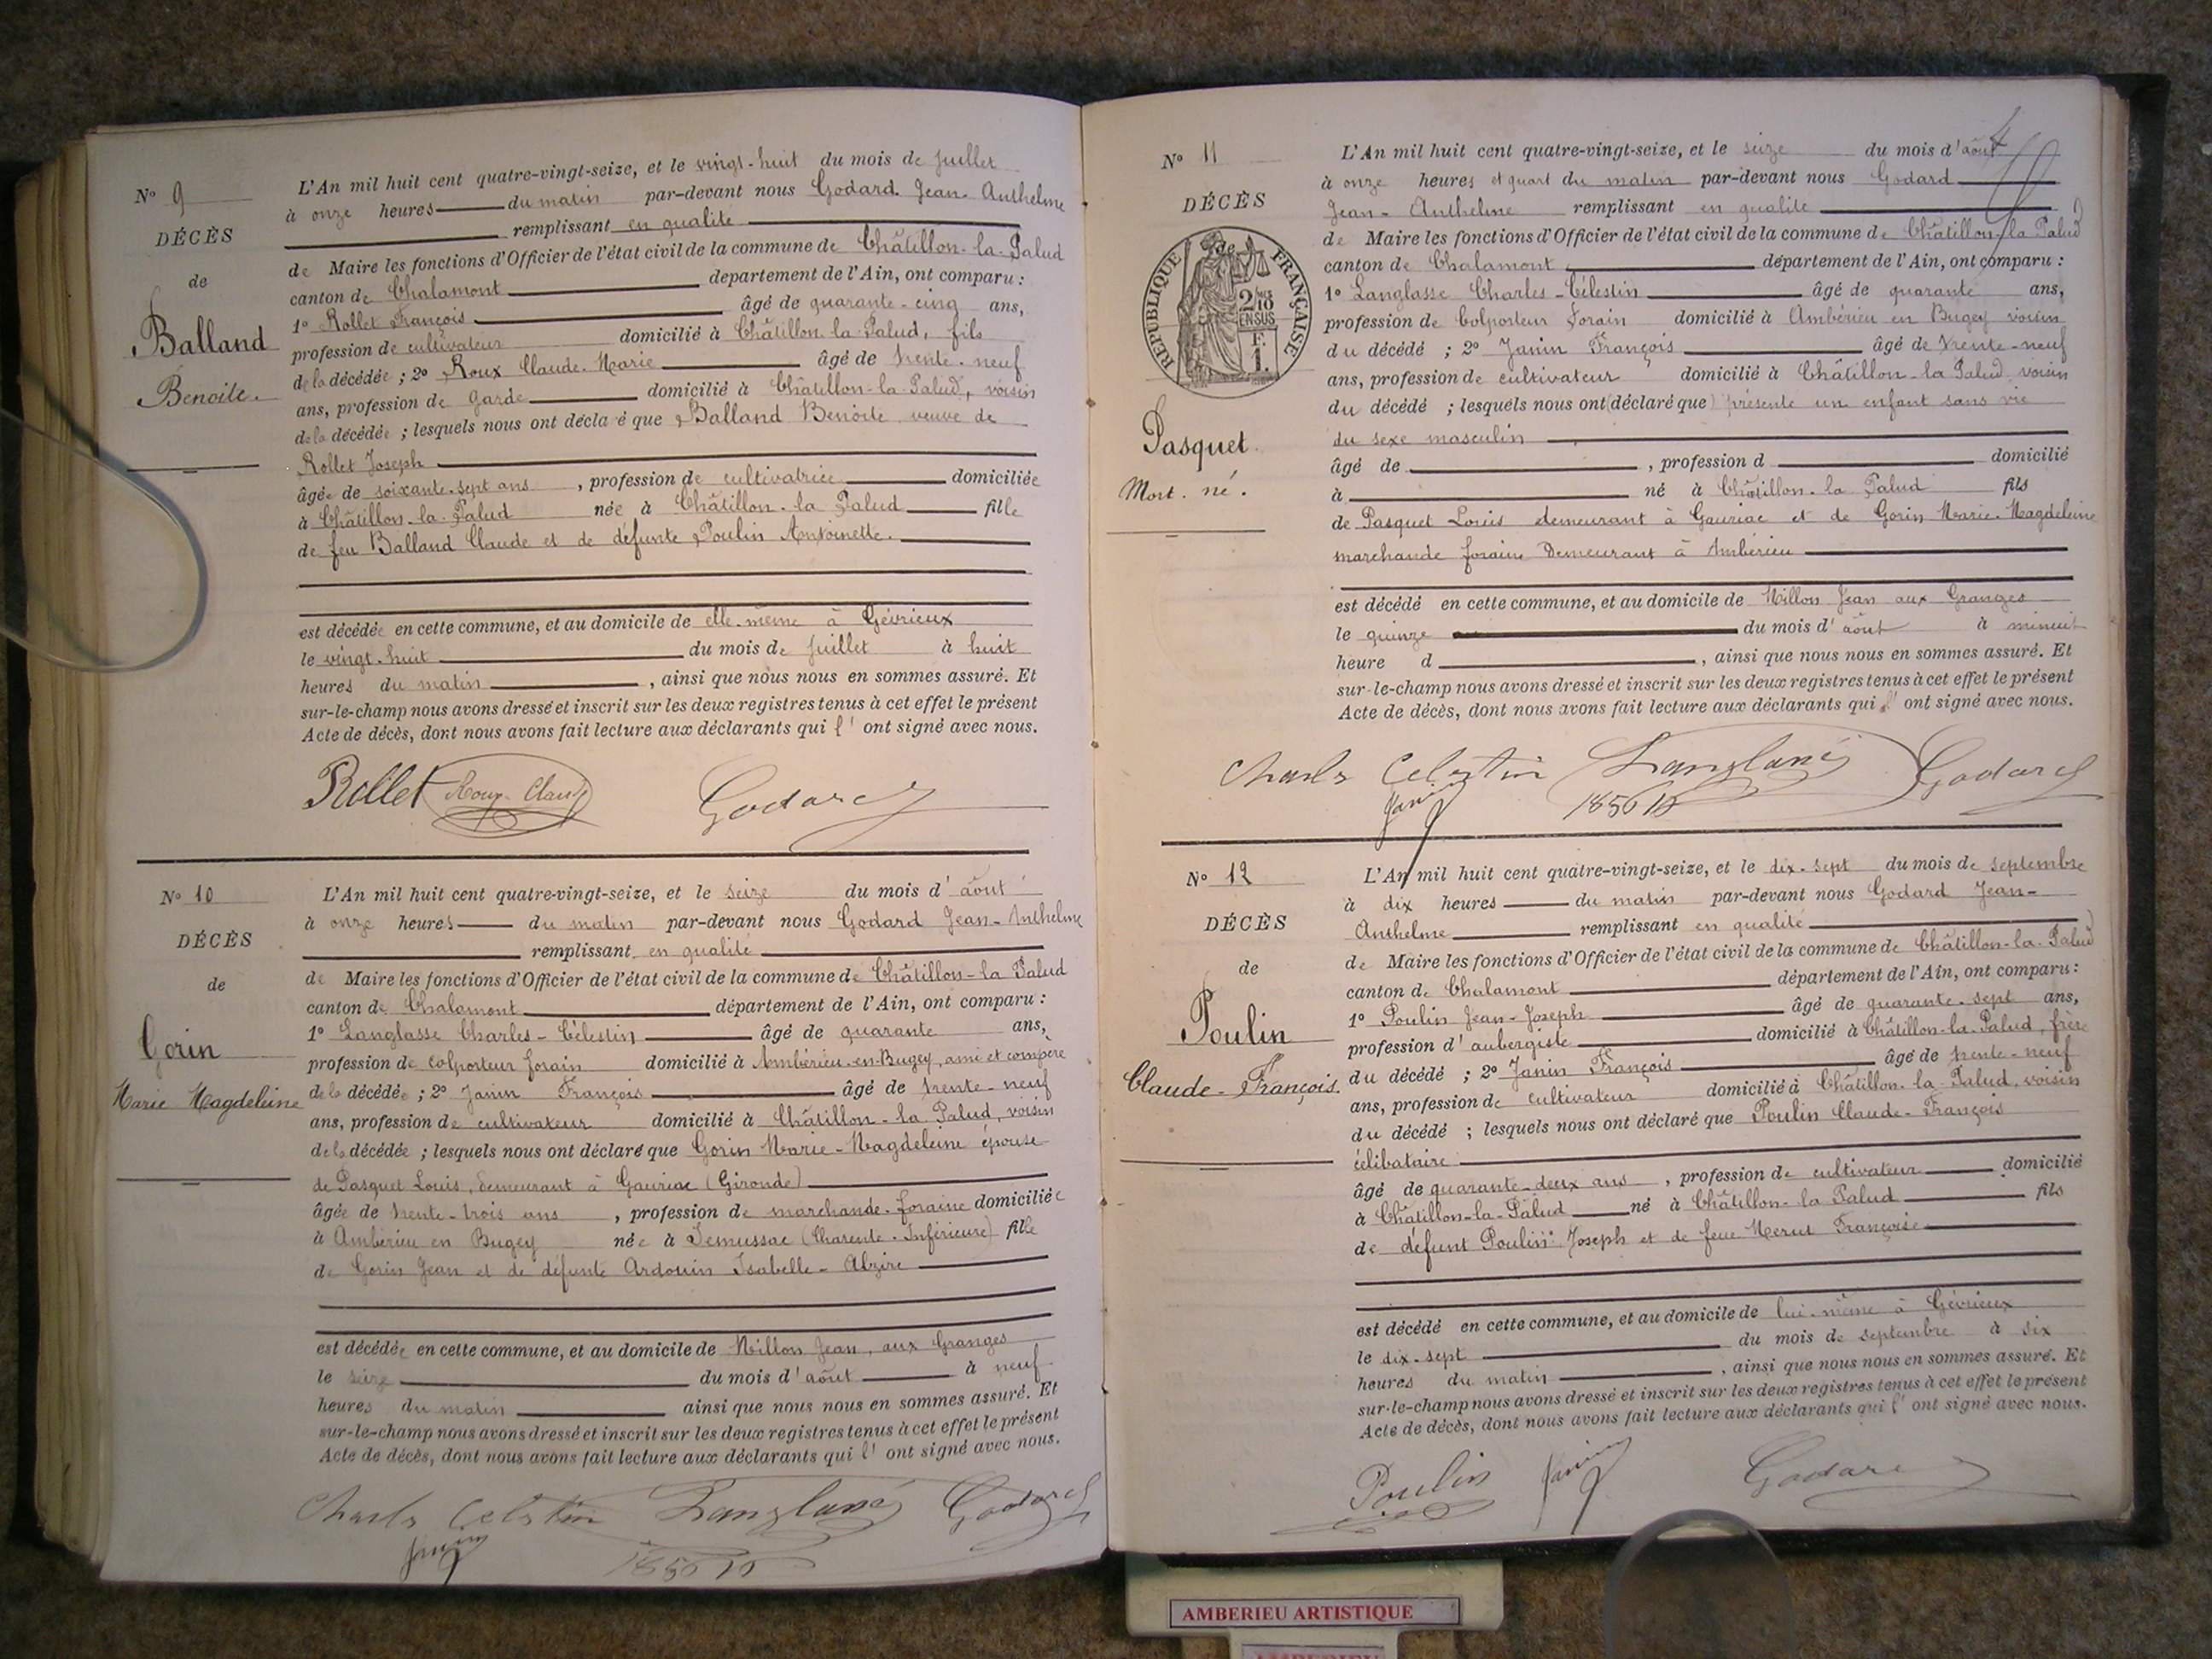 N° 9
DÉCÈS
de
Balland
Benoite.
L'An mil huit cent quatre-vingt-seize, et le vingt-huit du mois de juillet
à onze heures du matin par-devant nous Godard Jean-Anthelme
remplissant en qualité
de Maire les fonctions d'Officier de l'état civil de la commune de Châtillon-la-Palud
canton de Chalamont département de l'Ain, ont comparu :
1° Rollet François âgé de quarante-cinq ans,
profession de cultivateur domicilié à Châtillon-la-Palud, fils
de la décédée ; 2° Roux Claude-Marie âgé de trente-neuf
ans, profession de garde domicilié à Châtillon-la-Palud, voisin
de la décédée ; lesquels nous ont déclaré que Balland Benoite veuve de
Rollet Joseph
âgée de soixante-sept ans, profession de cultivatrice domiciliée
à Châtillon-la-Palud née à Châtillon-la-Palud fille
de feu Balland Claude et de défunte Poulin Antoinette.
est décédée en cette commune, et au domicile de elle-même à Gévrieux
le vingt-huit du mois de juillet à huit
heures du matin, ainsi que nous nous en sommes assuré. Et
sur-le-champ nous avons dressé et inscrit sur les deux registres tenus à cet effet le présent
Acte de décès, dont nous avons fait lecture aux déclarants qui l' ont signé avec nous.
Rollet Roux Claud Godard
N° 10
DÉCÈS
de
Gorin
Marie Magdeleine
L'An mil huit cent quatre-vingt-seize, et le seize du mois d'août
à onze heures du matin par-devant nous Godard Jean-Anthelme
remplissant en qualité
de Maire les fonctions d'Officier de l'état civil de la commune de Châtillon-la Palud
canton de Chalamont département de l'Ain, ont comparu :
1° Langlasse Charles-Célestin âgé de quarante ans,
profession de colporteur forain domicilié à Ambérieu-en-Bugey, ami et compère
de la décédée ; 2° Janin François âgé de trente-neuf
ans, profession de cultivateur domicilié à Châtillon-la Palud, voisin
de la décédée ; lesquels nous ont déclaré que Gorin Marie-Magdeleine épouse
de Pasquet Louis, demeurant à Gauriac (Gironde)
âgée de trente-trois ans, profession de marchande-foraine domiciliée
à Ambérieu en Bugey née à Semussac (Charente-Inférieure) fille
de Gorin Jean et de défunte Ardouin Isabelle-Alzire
est décédée en cette commune, et au domicile de Millon Jean, aux Granges
le seize du mois d'août à neuf
heures du matin ainsi que nous nous en sommes assuré. Et
sur-le-champ nous avons dressé et inscrit sur les deux registres tenus à cet effet le présent
Acte de décès, dont nous avons fait lecture aux déclarants qui l' ont signé avec nous.
Charls Celestin Godard
Janin
N° 11
DÉCÈS
de
RÉPUBLIQUE FRANÇAISE
2/10
EN SUS
F.
1.
Pasquet
Mort-né.
4
L'An mil huit cent quatre-vingt-seize, et le seize du mois d'août
à onze heures et quart du matin par-devant nous Godard
Jean-Anthelme remplissant en qualité
de Maire les fonctions d'Officier de l'état civil de la commune de Châtillon-la Palud
canton de Chalamont département de l'Ain, ont comparu :
1° Langlasse Charles-Célestin âgé de quarante ans,
profession de Colporteur forain domicilié à Ambérieu en Bugey voisin
du décédé ; 2° Janin François âgé de trente-neuf
ans, profession de cultivateur domicilié à Châtillon-la Palud, voisin
du décédé ; lesquels nous ont (déclaré que) présenté un enfant sans vie
du sexe masculin
âgé de , profession d domicilié
à né à Châtillon-la Palud fils
de Pasquet Louis demeurant à Gauriac et de Gorin Marie-Magdeleine
marchande foraine demeurant à Ambérieu
est décédé en cette commune, et au domicile de Millon Jean aux Granges
le quinze du mois d'août à minuit
heure d , ainsi que nous nous en sommes assuré. Et
sur-le-champ nous avons dressé et inscrit sur les deux registres tenus à cet effet le présent
Acte de décès, dont nous avons fait lecture aux déclarants qui l' ont signé avec nous.
Charls Celestin Godard
N° 12
DÉCÈS
de
Poulin
Claude-François.
L'An mil huit cent quatre-vingt-seize, et le dix-sept du mois de septembre
à dix heures du matin par-devant nous Godard Jean-
Anthelme remplissant en qualité
de Maire les fonctions d'Officier de l'état civil de la commune de Châtillon-la-Palud
canton de Chalamont département de l'Ain, ont comparu :
1° Poulin Jean-Joseph âgé de quarante-sept ans,
profession d'aubergiste domicilié à Châtillon-la-Palud, frère
du décédé ; 2° Janin François âgé de trente-neuf
ans, profession de cultivateur domicilié à Châtillon-la-Palud, voisin
du décédé ; lesquels nous ont déclaré que Poulin Claude-François
célibataire
âgé de quarante-deux ans, profession de cultivateur domicilié
à Châtillon-la-Palud né à Châtillon-la Palud fils
de défunt Poulin Joseph et de feue Merut Françoise
est décédé en cette commune, et au domicile de lui-même à Gévrieux
le dix-sept du mois de septembre à six
heures du matin, ainsi que nous nous en sommes assuré. Et
sur-le-champ nous avons dressé et inscrit sur les deux registres tenus à cet effet le présent
Acte de décès, dont nous avons fait lecture aux déclarants qui l' ont signé avec nous.
Poulin Janin Godard
AMBERIEU ARTISTIQUE
AMBERIEU